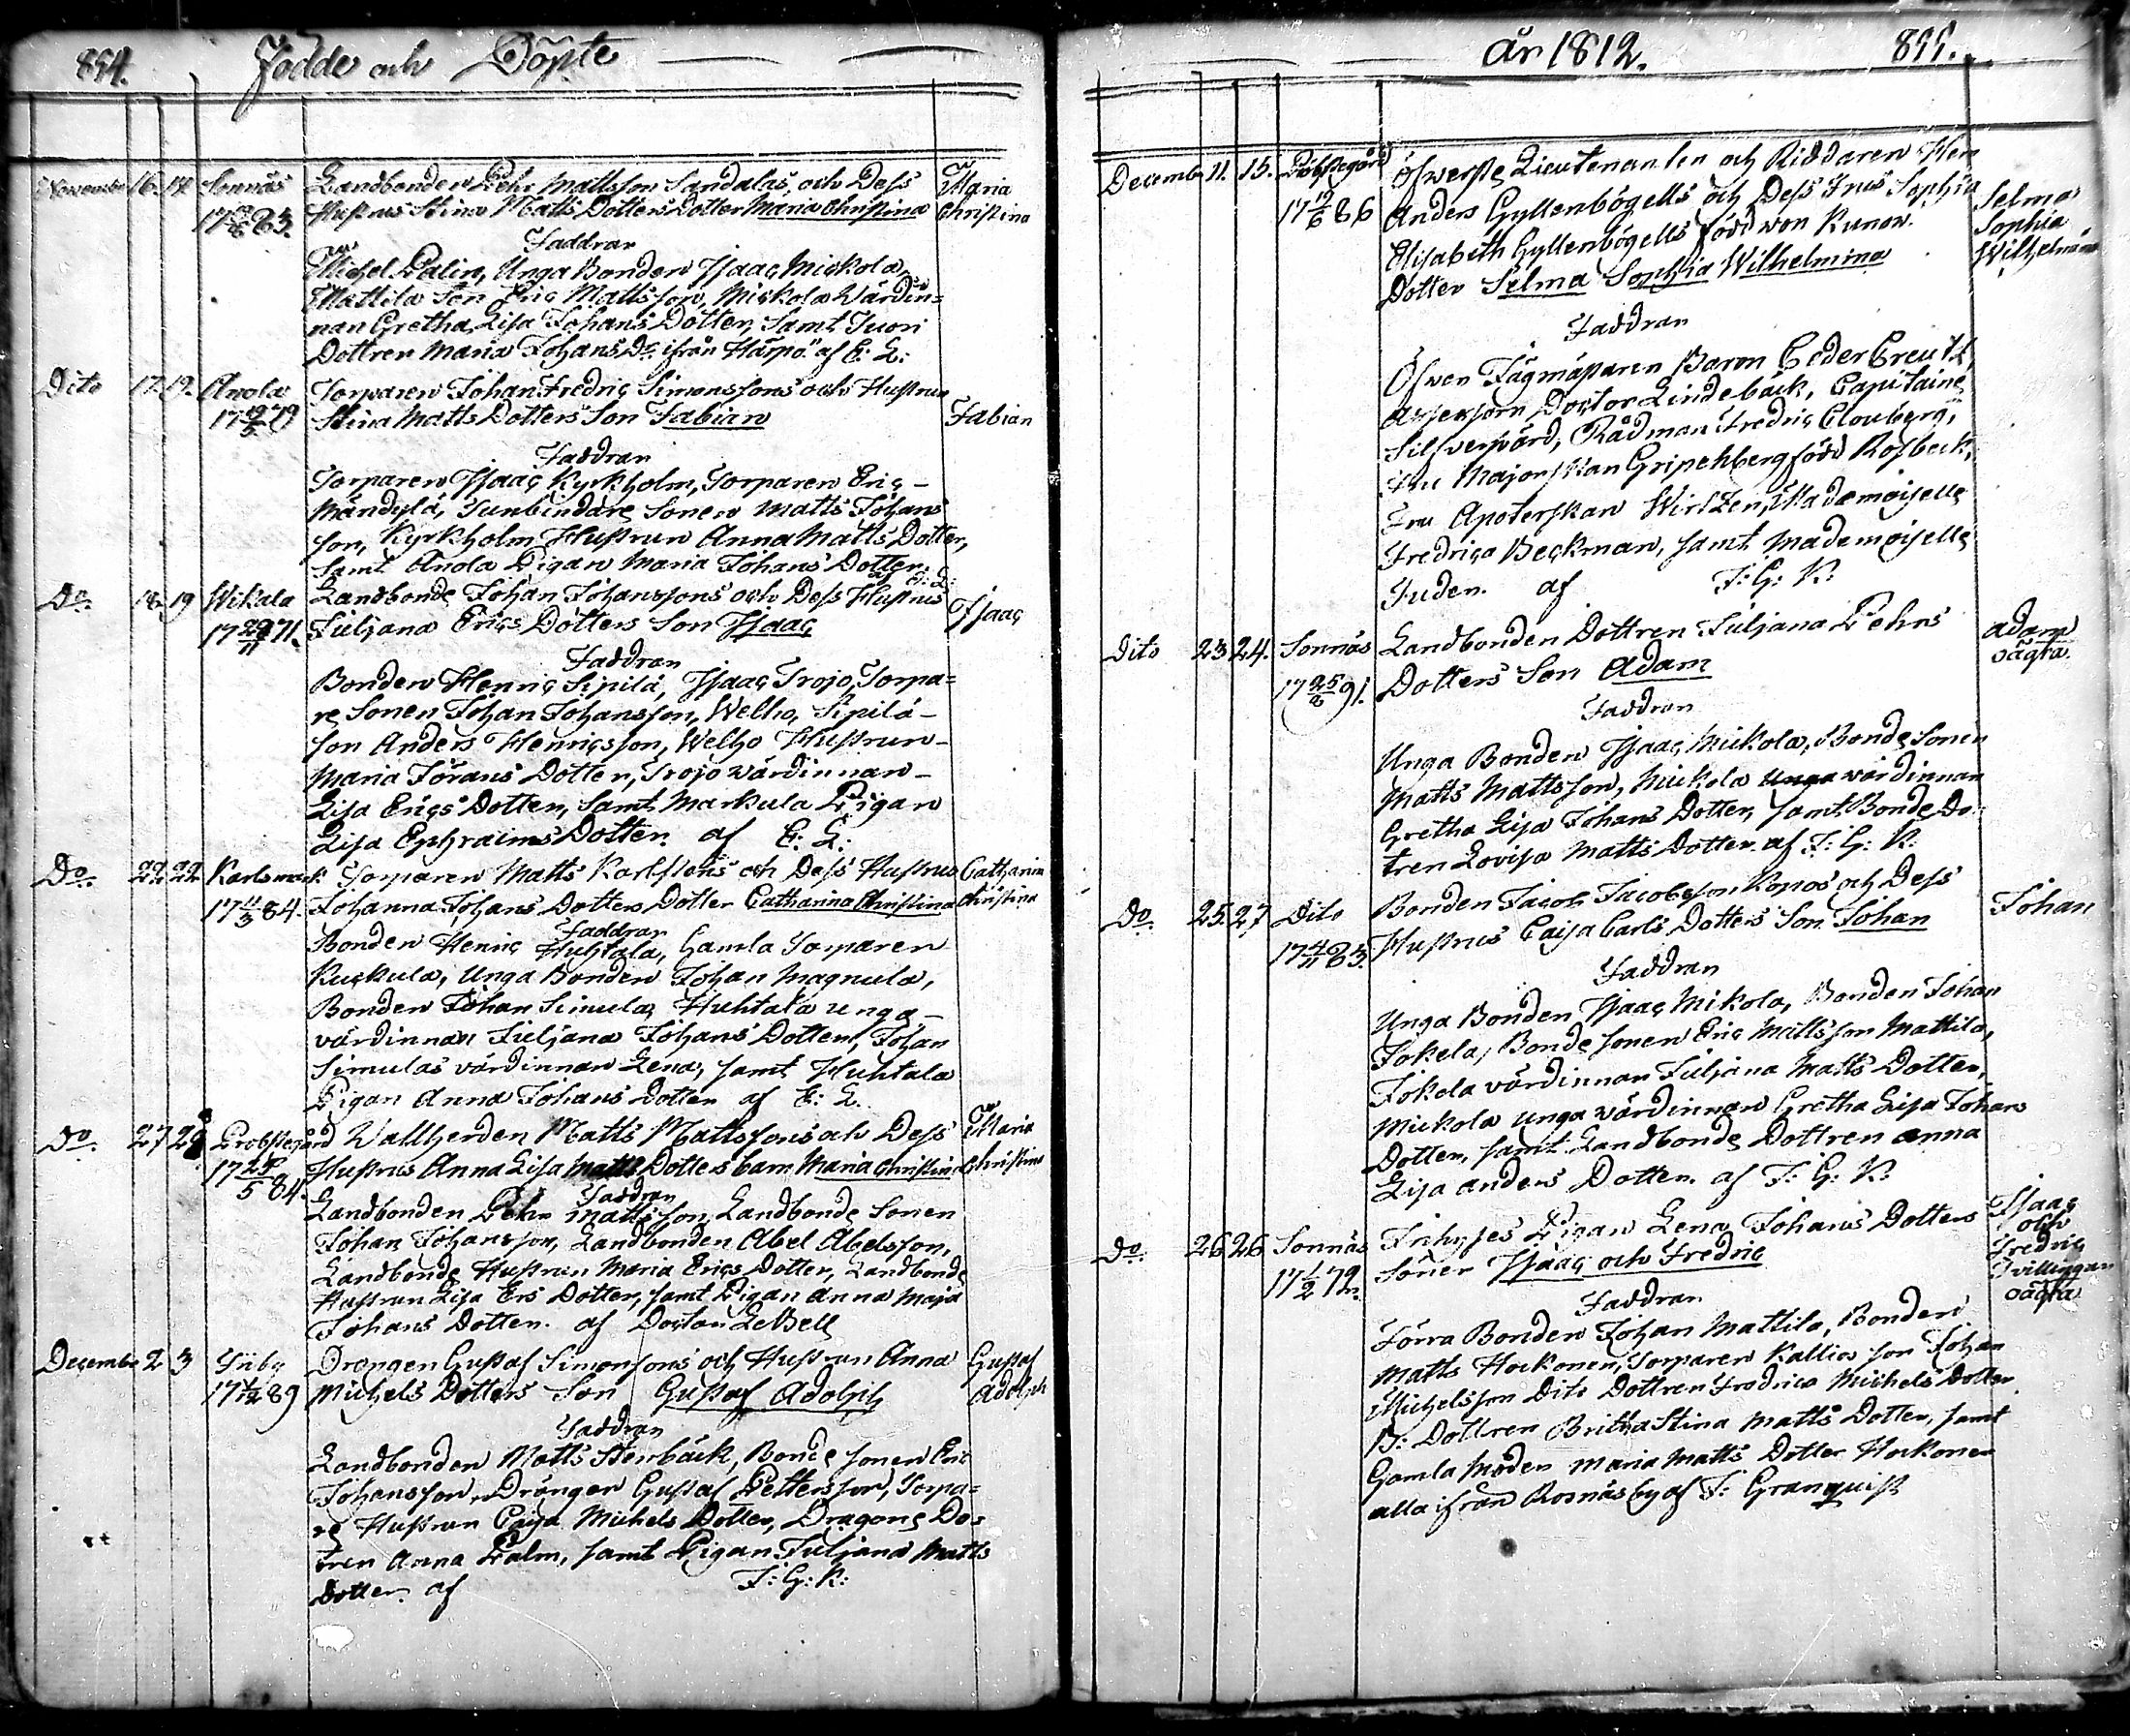 894. Födde och Döpte
November 16. 17. Sonnäs Landbonden Pehr Mattsson Sandalas, och Dess Maria
17 83. Hustrus Stina Matts Dotters Dotter Maria Christina Christina
Faddrar
Michel Palin, Unga Bonden Isaac Mickola,
Mattila Son Eric Mattsson, Mickola Värdin=
nan Gretha Lisa Johans Dotter, Samt Juori
Dottren Maria Johans Dr ifrån Härpö af E: L:
Dito 17. 19. Anola Torparen Johan Fredric Simonssons och Hustrun
17 19/5 79 Stina Matts Dotters Son Fabian Fabian
Faddrar
Torparen Isaac Kyrkholm, Torparen Eric
Mändylä, Tunbindare Sonen Matts Johans
son, Kyrkholm Hustrun Anna Matts Dotter,
Samt Anola Pigan Maria Johans Dotter.
af E: L:
Do 18 19 Wikala Landbonde Johan Johanssons och Dess Hustrus
17 29/11 71. Juljana Erics Dotters Son Isaac Isaac
Faddrar
Bonden Henric Sipilä, Isaac Trojo, Torpa=
re Sonen Johan Johansson, Welho, Sipilä
son Anders Henricsson, Welho Hustrun
Maria Görans Dotter, Trojo värdinnan
Lisa Erics Dotter, Samt Markula Pigan
Lisa Ephraims Dotter. af E: L:
Do 22. 22. Karlsmark Torparen Matts Karlstens och Dess Hustrus Catharina
17 11/3 84. Johanna Johans Dotters Dotter Catharina Christina Christina
Faddrar
Bonden Henric Huhtala, Gamla Torparen
Kuckula, Unga Bonden Johan Magnula,
Bonden Johan Simula, Huhtala unga
värdinnan Juljana Johans Dotter, Johan
Simulas värdinnan Lena, samt Huhtala
Pigan Anna Johans Dotter af E: L.
Do 27 28 Probstegård Wallherden Matts Mattssons och Dess Maria
17 25/5 84. Hustrus Anna Lisa Matts Dotters barn Maria Christina Christina
Faddrar
Landbonden Pehr Mattsson, Landbonde Sonen
Johan Johansson, Landbonden Abel Abelsson,
Landbonde Hustrun Maria Erics Dotter, Landbonde
Hustrun Lisa Ers Dotter, samt Pigan Anna Maja
Johans Dotter. af Doctor LeBell
December 2 3 Inby Drängen Gustaf Simonsons och Hustrun Anna Gustaf
17 89 Michels Dotters Son Gustaf Adolph Adolph
Faddrar
Landbonden Matts Stenbäck, Bonde sonen Eric
Johansson, Drängen Gustaf Pettersson, Torpa=
re Hustrun Caisa Michels Dotter, Dragone Do=
tren Anna Palm, samt Pigan Juljana Matts
Dotter. af F: G: K:
år 1812. 895.
December 11. 15. Probstegård Öfwerste Lieutenanten och Riddaren Herr
17 19/6 86 Anders Gyllenbögells och Dess Frus Sophia Selma
Elisabeth Gyllenbögells född von Kunow. Sophia
Dotter Selma Sophia Wilhelmina Wilhelmina
Faddrar
Öfwer Jägmästaren Baron CederCreutz,
Assessorn Doctor Lindebäck, Capitaine
Silfversvärd, Rådman Fredric Clouberg,
Fru Majorskan Gripenberg född Rosbeck,
Fru Apoterskan Wirtzen, Mademoiselle
Fredrica Beckman, samt Mademoiselle
Juden. af F: G: K:
Dito 23 24. Sonnäs Landbonden Dottren Juljana Pehrs Adam
17 25/2 91. Dotters Son Adam oägta.
Faddrar
Unga Bonden Isaac Mickola, Bonde Sonen
Matts Mattsson, Mickola Unga värdinnan
Gretha Lisa Johans Dotter, samt Bonde Do=
tren Lovisa Matts Dotter. af F: G: K.
Do 25. 27 Dito Bonden Jacob Jacobsson Kopos och Dess
17 4/11 83. Hustrus Caisa Carls Dotters Son Johan Johan
Faddrar
Unga Bonden Isaac Mikola, Bonden Johan
Jokela, Bonde sonen Eric Mattsson Mattila,
Jokela värdinnan Juljana Matts Dotter,
Mickola unga värdinnan Gretha Lisa Johans
Dotter, samt Landbonde Dottren Anna
Lisa Anders Dotter. af F: G: K:
Do 26 26 Sonnäs Inhyses Pigan Lena Johans Dotters Isaac
17 1/2 72. Söner Isaac och Fredric och
Fredric
Tvillingar
oägta
Faddrar
Förra Bonden Johan Mattila, Bonden
Matts Hockonen, Torparen Kallios son Johan
Michelsson Dito Dottren Fredrica Michels Dotter
B: Dottren Britha Stina Matts Dotter, samt
Gamla Moder Maria Matts Dotter Hockonen
alla ifrån Rosnäs by af F: Granquist